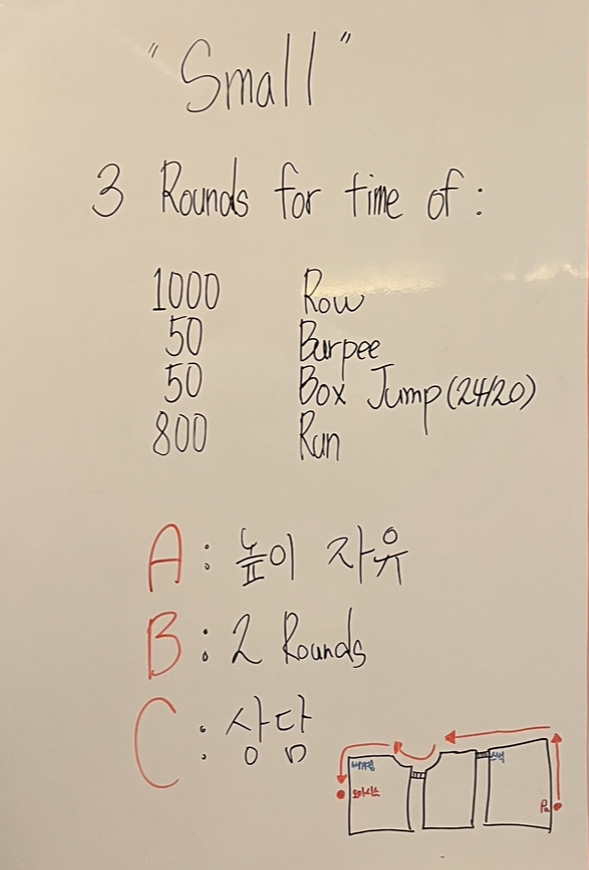 "Small"
3 Rounds for time of:
1000 Row
50 Burpee
50 Box Jump (24/20)
800 Run
A: 높이 자유
B: 2 Rounds
C: 상담
오아시스